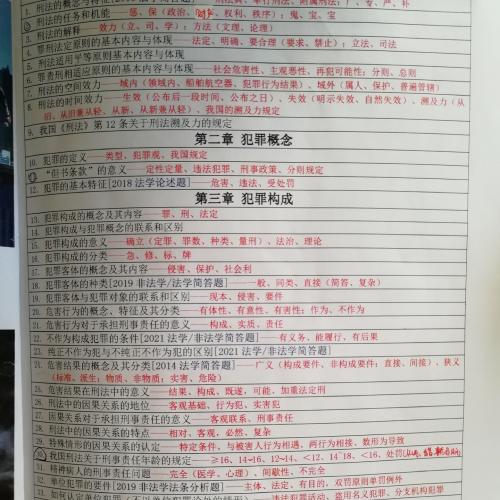 刑法的任务和机能——惩、保（政治、财产、权利、秩序）；鬼、宝、宝
3. 刑法的解释——效力（立、司、学）；方法（文理、论理）
4. 罪刑法定原则的基本内容与体现——法定、明确、要合理（要求、禁止）；立法、司法
5. 刑法适用平等原则基本内容与体现
6. 罪责刑相适应原则的基本内容与体现——社会危害性、主观恶性、再犯可能性；分则、总则
7. 刑法的空间效力——域内（领域内、船舶航空器、犯罪行为结果）、域外（属人、保护、普遍管辖）
8. 刑法的时间效力——生效（公布后一段时间、公布之日）、失效（明示失效、自然失效）、溯及力（从旧、从旧兼从轻、从新、从新兼从轻）、我国的溯及力
9. 我国《刑法》第 12 条关于刑法溯及力的规定
第二章 犯罪概念
10. 犯罪的定义——类型、犯罪观、我国规定
11. “但书条款”的意义——定性定量、违法犯罪、刑事政策、分则规定
12. 犯罪的基本特征[2018 法学论述题]——危害、违法、受处罚
第三章 犯罪构成
13. 犯罪构成的概念及其内容——罪、刑、法定
14. 犯罪构成与犯罪概念的联系和区别
15. 犯罪构成的意义——确立（定罪、罪数、种类、量刑）、法治、理论
16. 犯罪构成的分类——急、修、标、牌
17. 犯罪客体的概念及其内容——侵害、保护、社会利
18. 犯罪客体的种类[2019 非法学/法学简答题]——一般、同类、直接（简答、复杂）
19. 犯罪客体与犯罪对象的联系和区别——现本、侵害、要件
20. 危害行为的概念、特征及其分类——有体性、有意性、有害性；作为、不作为
21. 危害行为对于承担刑事责任的意义——构成、实质、责任
22. 不作为构成犯罪的条件[2021 法学/非法学简答题]——有义务、能履行、有后果
23. 纯正不作为犯与不纯正不作为犯的区别[2021 法学/非法学简答题]
24. 危害结果的概念及其分类[2014 法学简答题]——广义（构成要件、非构成要件；直接、间接）、狭义（标准、派生；物质、非物质；实害、危险）
25. 危害结果在刑法中的意义——结果、构成、既遂，可能、加重法定刑
26. 刑法中的因果关系的地位——客观基础、行为犯、实害犯
27. 因果关系对于承担刑事责任的意义——客观联系、刑事责任
28. 刑法中的因果关系的特点——相对、客观，必然、复杂
29. 特殊情形的因果关系的认定——特定条件，与被害人行为相遇，两行为相接、数形为导致
30. 我国刑法关于刑事责任年龄的规定——≥16、14~16、12~14、<12、14~18、<16、处罚
31. 精神病人的刑事责任问题——完全（医学、心理）、间歇性、不完全
32. 单位犯罪的要件[2019 非法学法条分析题]——主体、法定、有目的，双罚原则单罚例外